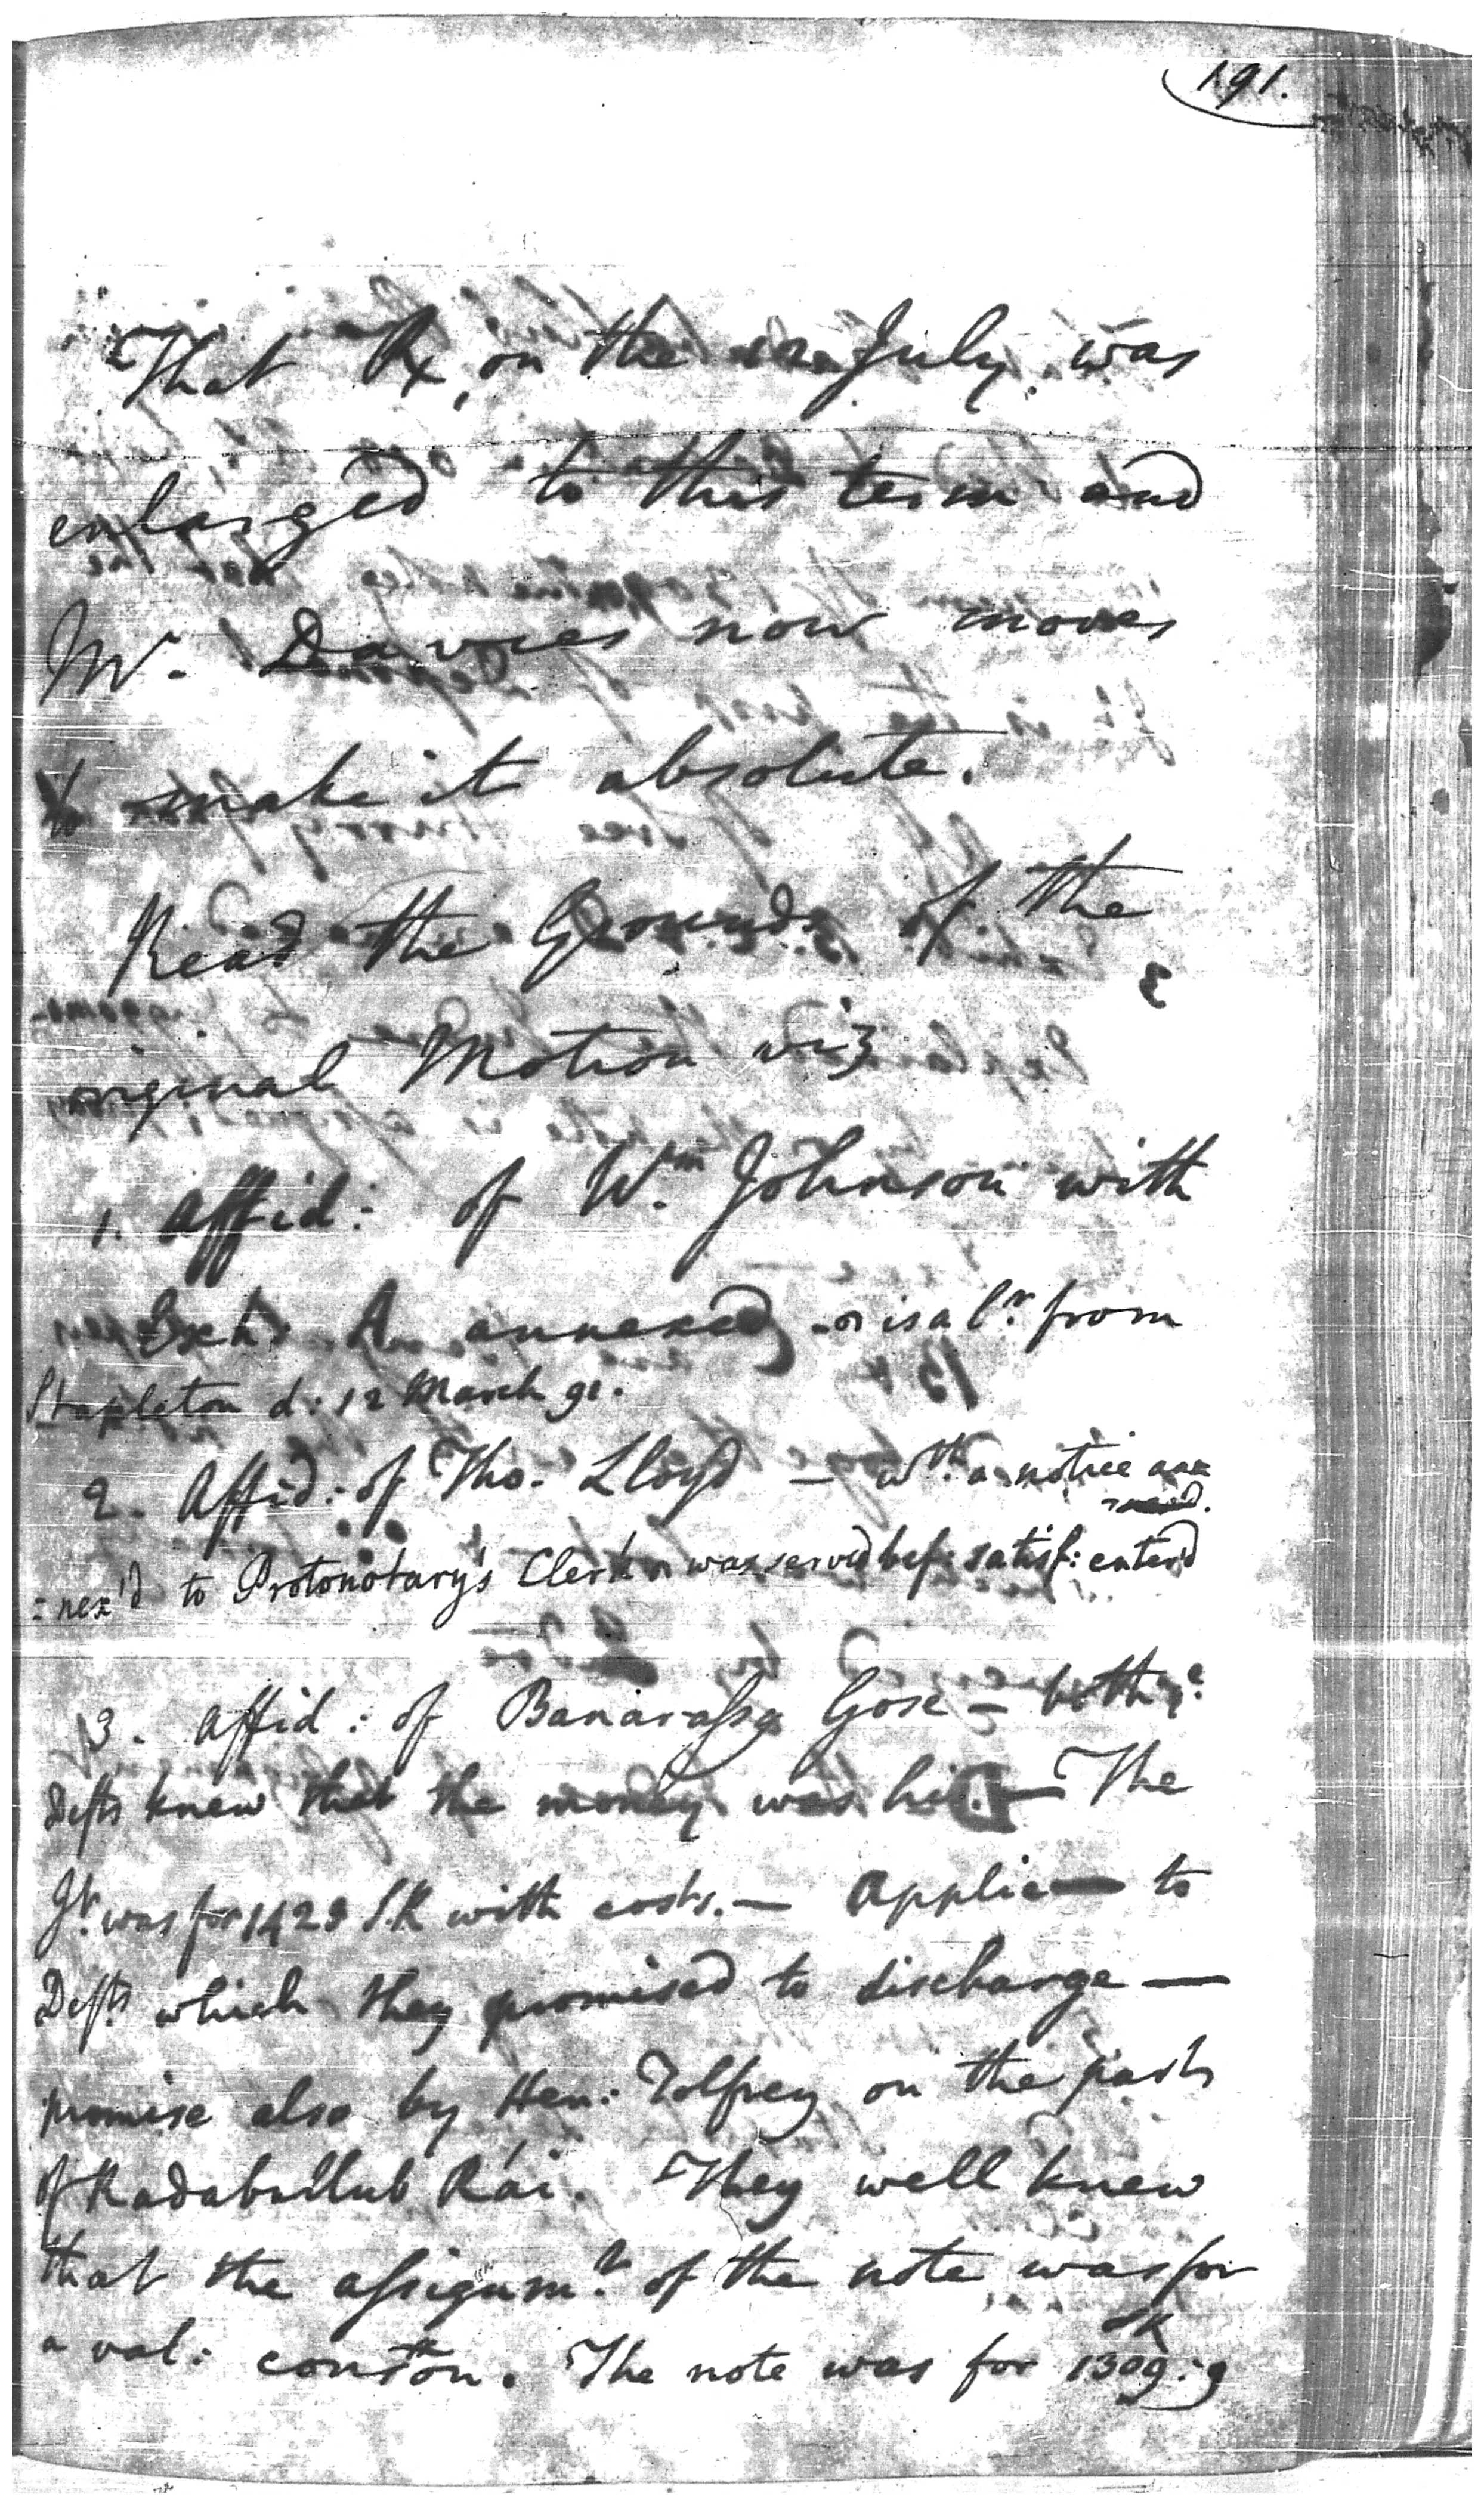 191.
That Rx, on the July was
enlarged to this term and
Mr. Davies now moves
to make it absolute.
Read the Grounds of the
original Motion viz
1. Affid: of Wm. Johnson with
Exht. A annexed is a lr. from
Stapleton d: 12 March 91.
2. Affid: of Tho. Lloyd — wth. a notice an
=nex'd to Protonotary's Clerk was served bef: satisf: enter'd
3. Affid: of Banarassa Gose — both ye.
Defts knew that the money was his. — The
Jt. was for 1429 S.R with costs. — Applic— to
Defts which they promised to discharge —
promise also by Hen: Tolfrey on the part
of Radabullub Rái. They well knew
that the assignmt. of the note was for
a val: conston. The note was for 1309:9
SR